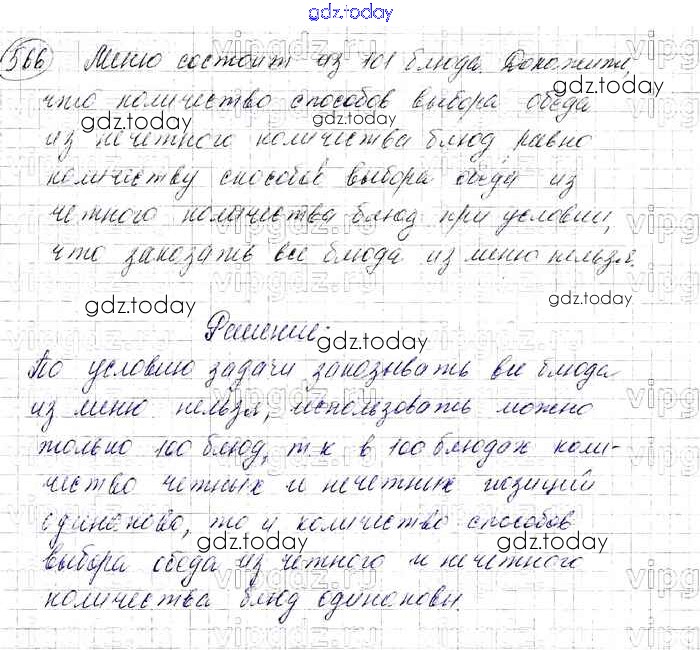 gdz.today
566 Меню состоит из 101 блюда. Докажите,
что количество способов выбора обеда
из нечетного количества блюд равно
количеству способов выбора обеда из
четного количества блюд при условии,
что заказать все блюда из меню нельзя.
Решение:
По условию задачи заказывать все блюда
из меню нельзя, использовать можно
только 100 блюд, т.к в 100 блюдах коли-
чество четных и нечетных позиций
одинаково, то и количество способов
выбора обеда из четного и нечетного
количества блюд одинаковы